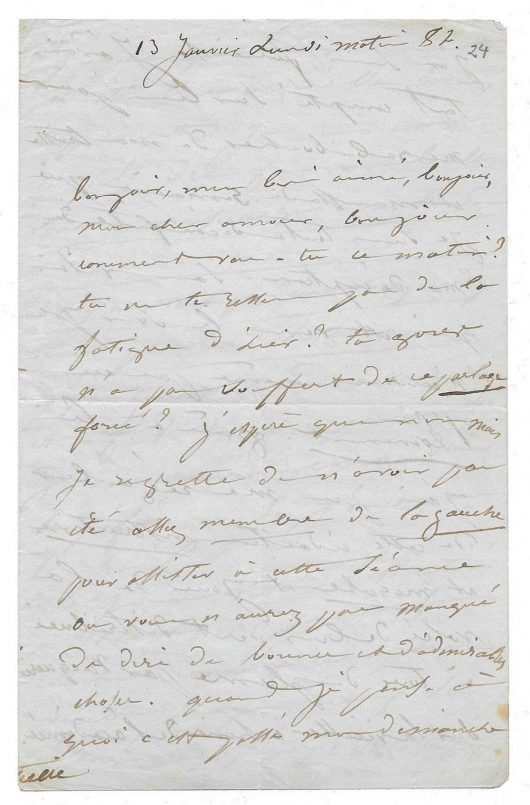 13 Janvier Lundi matin 8h.
24
bonjour, mon bien aimé, bonjour,
mon cher amour, bonjour
comment vas-tu ce matin?
tu ne te ressens pas de la
fatigue d'hier? ta gorge
n'a pas souffert de ce parlage
forcé? J'espère que non mais
je regrette de n'avoir pas
été assez membre de la gauche
pour assister à cette séance
où vous n'aurez pas manqué
de dire de bonnes et d'admirables
choses. quand je pense à
quoi s'est passé mon dimanche